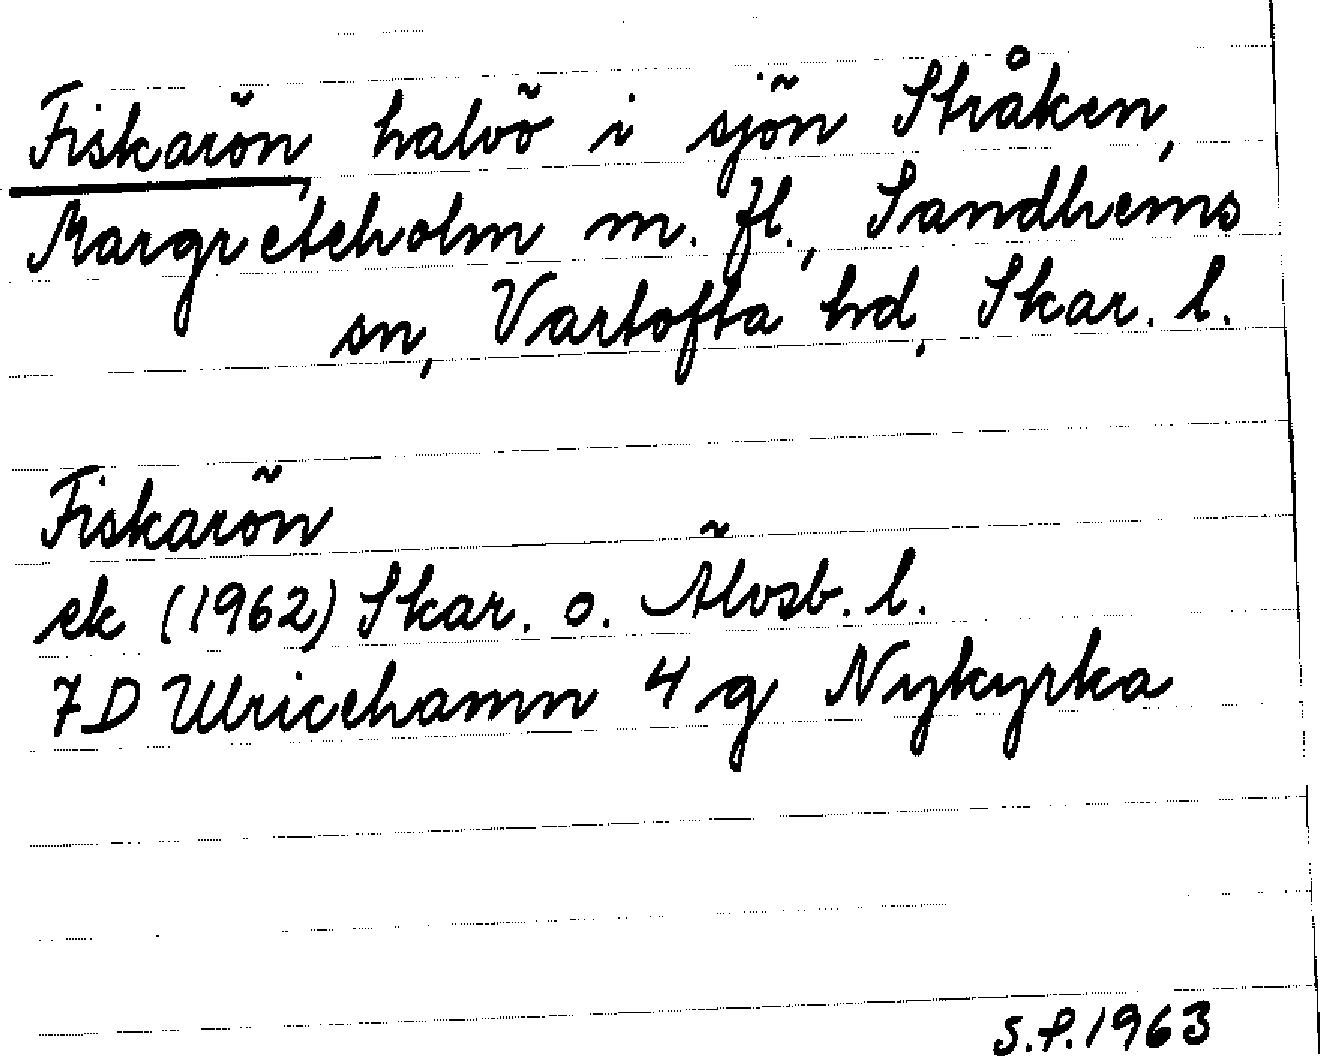 Fiskarön, halvö i sjön Stråken,
Margreteholm m. fl., Sandhems
sn, Vartofta hd, Skar. l.
Fiskarön
ek (1962) Skar. o. Älvsb. l.
7D Ulricehamn 4 g Nykyrka
S.P. 1963